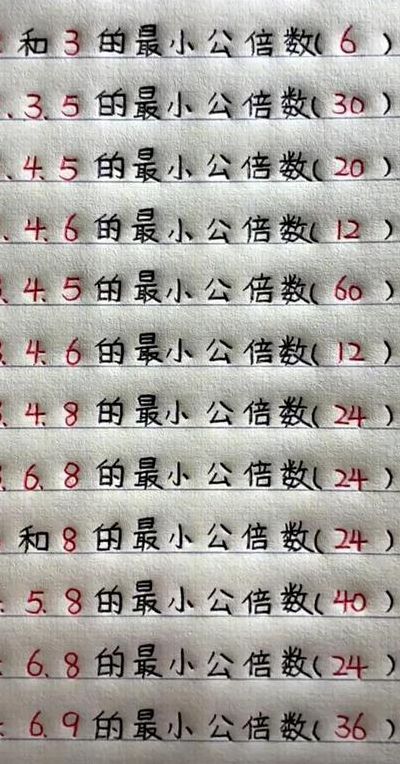 和3的最小公倍数(6)
.3.5的最小公倍数(30)
.4.5的最小公倍数(20)
.4.6的最小公倍数(12)
.4.5的最小公倍数(60)
.4.6的最小公倍数(12)
.4.8的最小公倍数(24)
.6.8的最小公倍数(24)
和8的最小公倍数(24)
.5.8的最小公倍数(40)
.6.8的最小公倍数(24)
.6.9的最小公倍数(36)